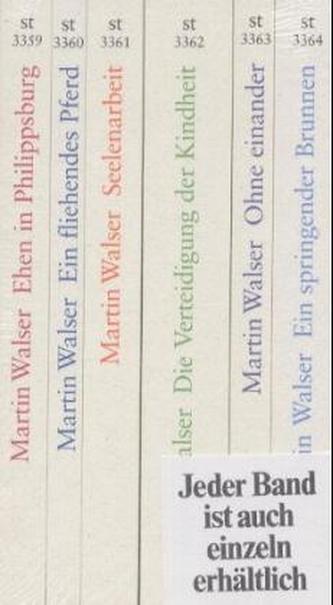 st
3359
Martin Walser Ehen in Philippsburg
st
3360
Martin Walser Ein fliehendes Pferd
st
3361
Martin Walser Seelenarbeit
st
3362
alser Die Verteidigung der Kindheit
st
3363
Martin Walser Ohne einander
st
3364
in Walser Ein springender Brunnen
Jeder Band
ist auch
einzeln
erhältlich